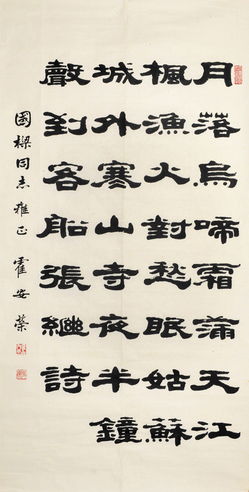 月落烏啼霜滿天江
楓漁火對愁眠姑蘇
城外寒山寺夜半鐘
聲到客船張繼詩
國樑同志雅正 霍安榮